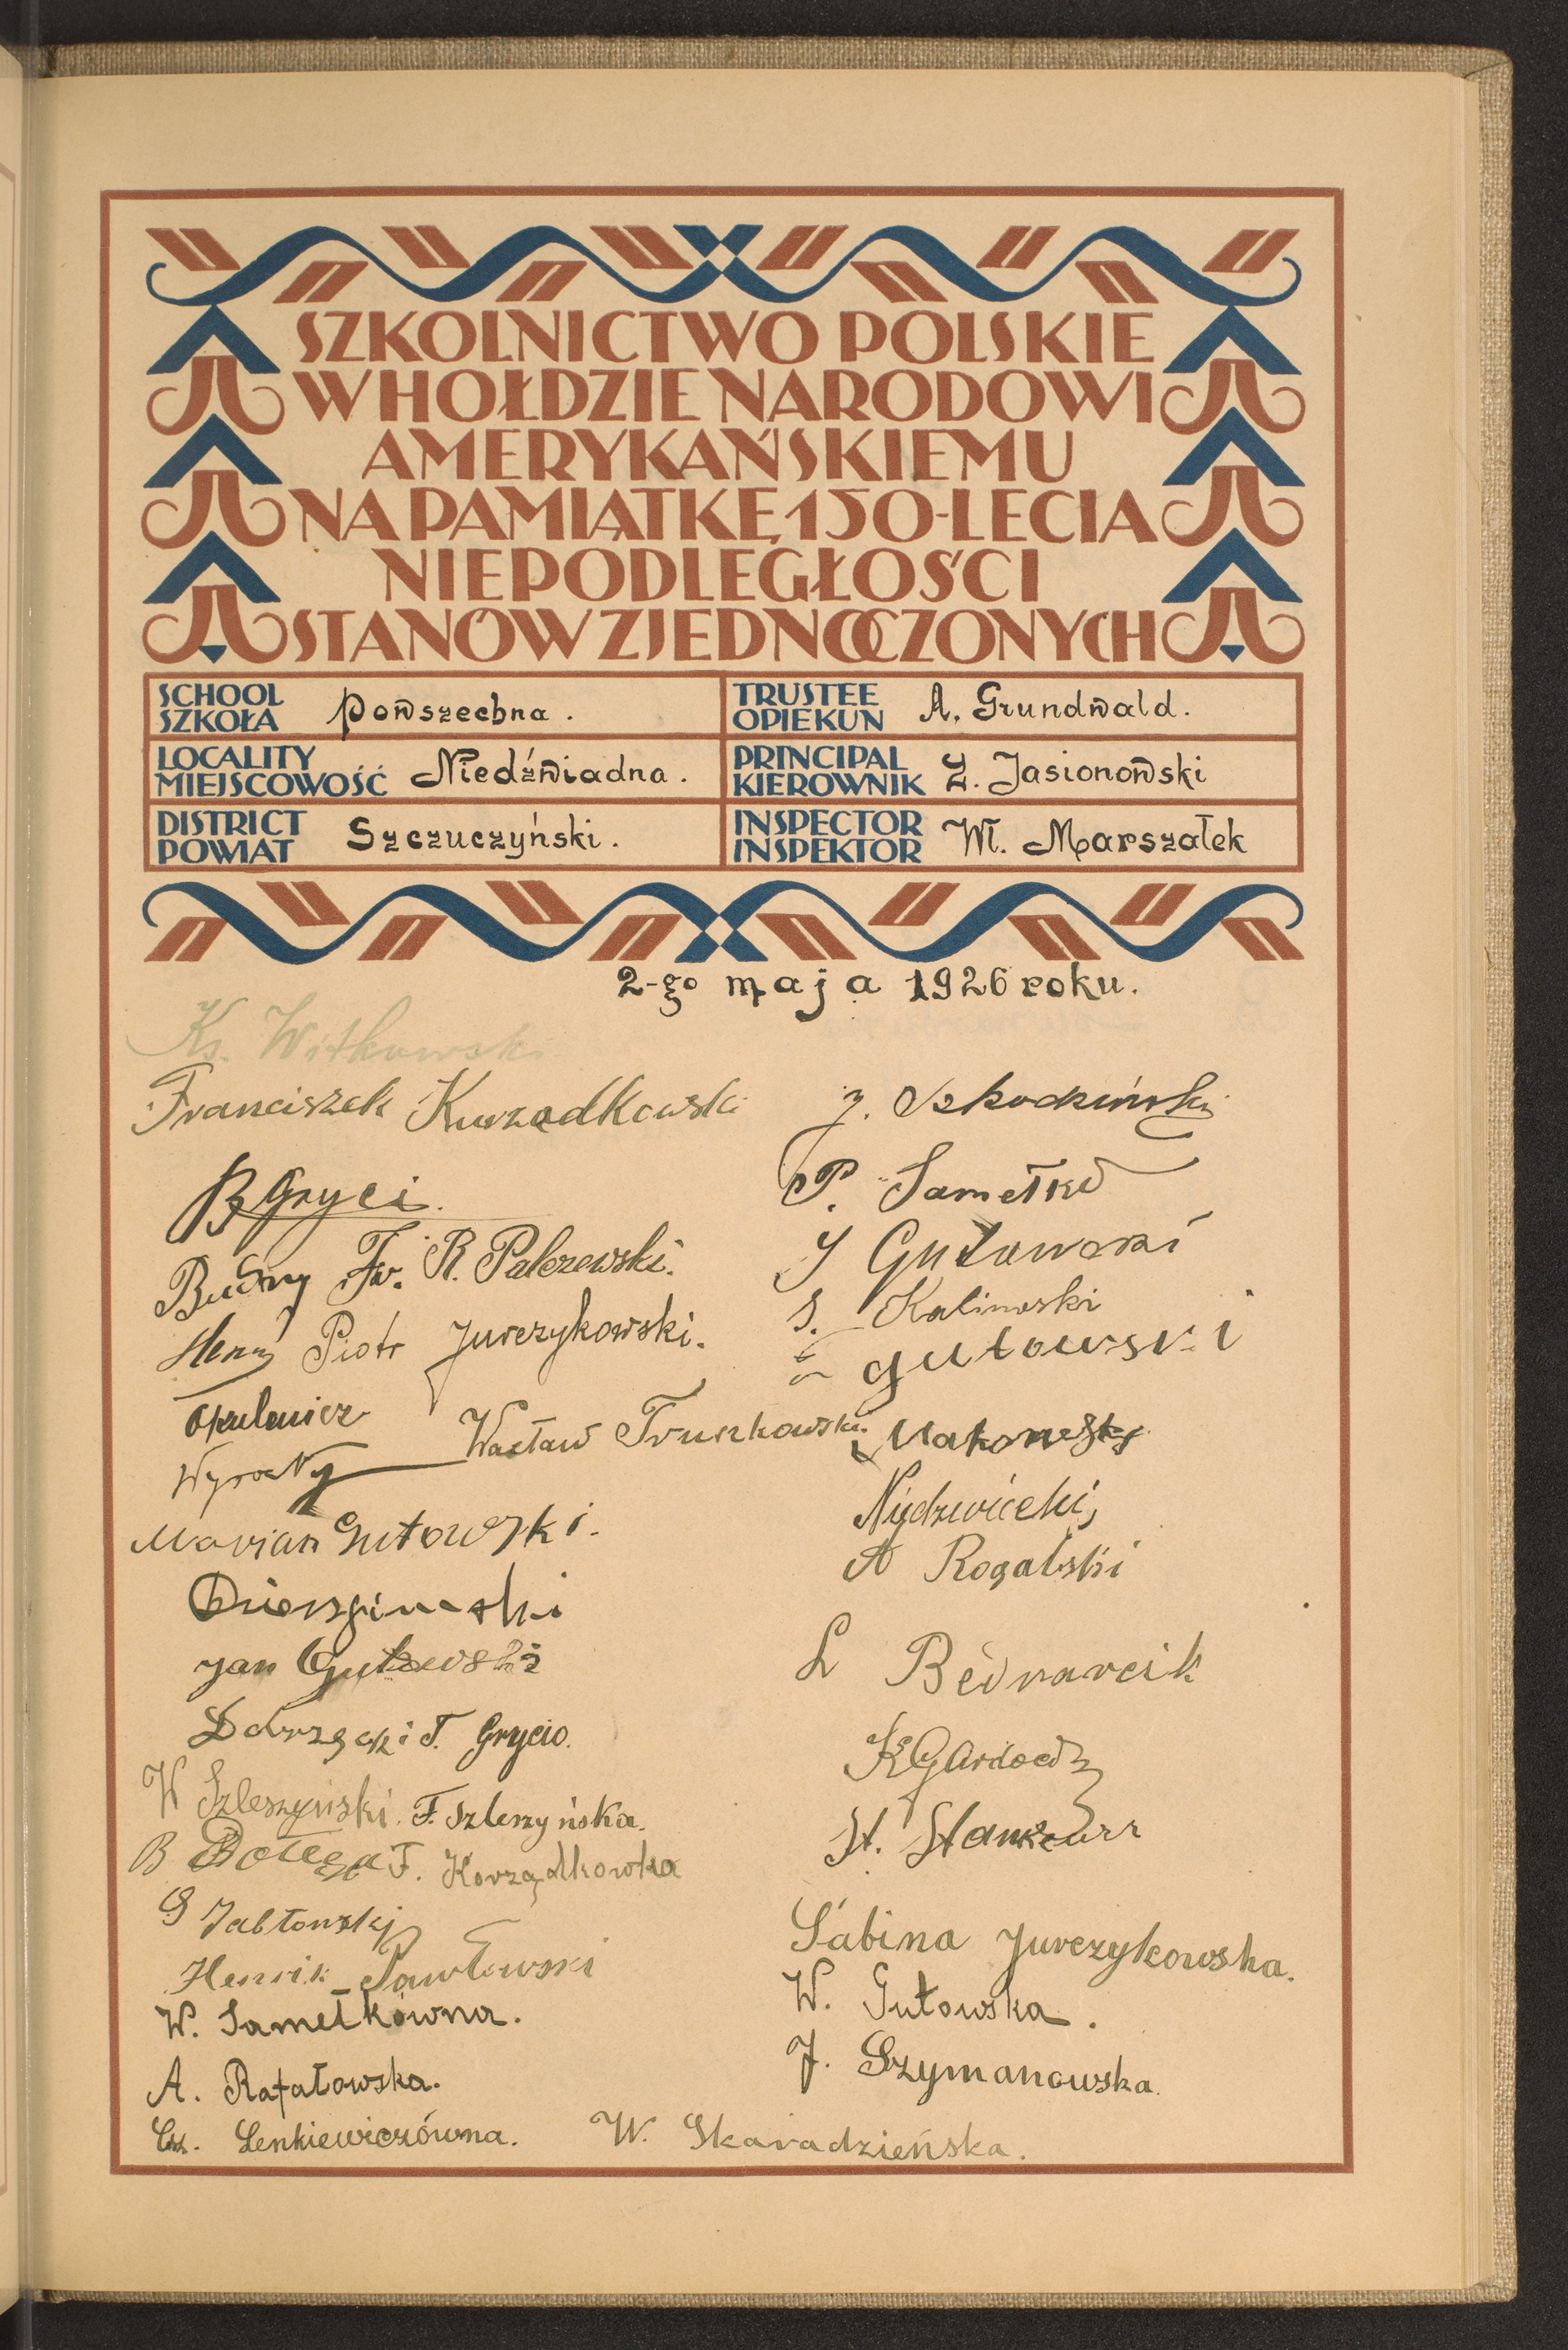 SZKOLNICTWO POLSKIE
W HOŁDZIE NARODOWI
AMERYKAŃSKIEMU
NA PAMIĄTKĘ 150-LECIA
NIEPODLEGŁOŚCI
STANÓW ZJEDNOCZONYCH
SCHOOL
SZKOŁA Powszechna.
TRUSTEE
OPIEKUN A. Grundwald.
LOCALITY
MIEJSCOWOŚĆ Niedźwiadna.
PRINCIPAL
KIEROWNIK Z. Jasionowski
DISTRICT
POWIAT Szczuczyński.
INSPECTOR
INSPEKTOR Wł. Marszałek
2-go maja 1926 roku.
Ks. Witkowski
Franciszek Kurzadkowski
B Gryci.
Fr. R. Palczewski.
Henryj Piotr Jurczykowski.
Okulewicz
Wysocky Wacław Truszkowski
Marian Gutowski.
Jan Gutowski
T. Grycio.
W Szleszyński. F. Szleszyńska.
B F. Korządkowska
Jabłonskj
Henrik Pawłowski
W. Samełkówna.
A. Rafałowska.
Cz. Lenkiewiczówna.
J. Szkodziński
P. Samełko
J Gutowski
S. Kalinoski
gutowski
Makowsky
A Rogalski
L Bednarcik
St.
Sabina Jurczykowska.
W. Gutowska.
J. Szymanowska.
W. Skaradzieńska.